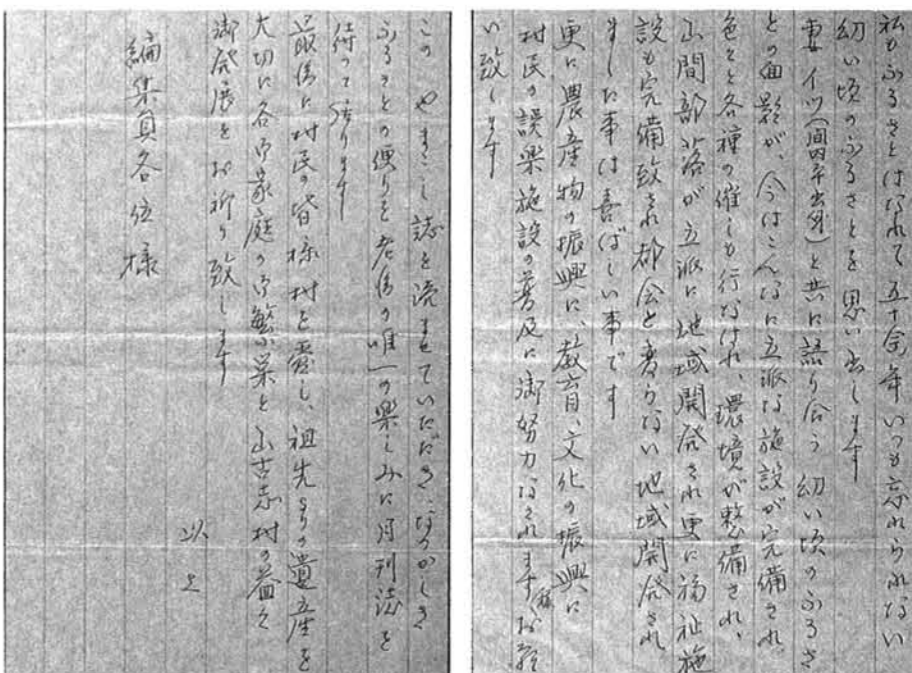 私もふるさとはなれて五十余年いつも忘れられない
幼い頃のふるさとを思い出します
妻イツ(間内平出身)と共に語り合う幼い頃のふるさ
との面影が、今はこんなに立派な施設が完備され
色々と各種の催しも行なはれ、環境が整備され、
山間部落が立派に地域開発され更に福祉施
設も完備致され都会と変らない地域開発され
ました事は喜ばしい事です
更に農産物の振興に、教育、文化の振興に
村民の娯楽施設の普及に御努力なされます様お願
い致します
この やまこし誌を読ませていただき、なつかしき
ふるさとの便りを老後の唯一の楽しみに月刊誌を
待って居ります
最後に村民の皆様 村を愛し、祖先よりの遺産を
大切に各御家庭の御繁栄と山古志村の益々
御発展をお祈り致します
以上
編集員各位様